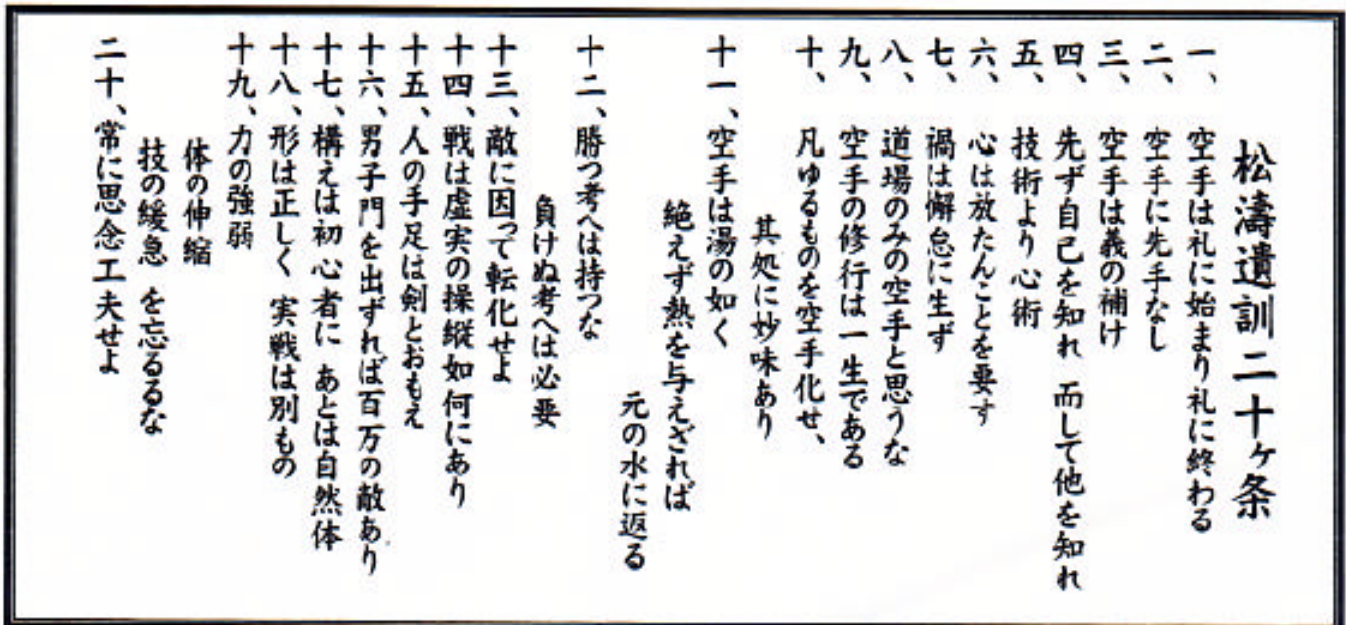 松濤遺訓二十ヶ条
一、空手は礼に始まり礼に終わる
二、空手に先手なし
三、空手は義の補け
四、先ず自己を知れ 而して他を知れ
五、技術より心術
六、心は放たんことを要す
七、禍は懈怠に生ず
八、道場のみの空手と思うな
九、空手の修行は一生である
十、凡ゆるものを空手化せ、
其処に妙味あり
十一、空手は湯の如く
絶えず熱を与えざれば
元の水に返る
十二、勝つ考へは持つな
負けぬ考へは必要
十三、敵に因って転化せよ
十四、戦は虚実の操縦如何にあり
十五、人の手足は剣とおもえ
十六、男子門を出ずれば百万の敵あり
十七、構えは初心者に あとは自然体
十八、形は正しく 実戦は別もの
十九、力の強弱
体の伸縮
技の緩急 を忘るるな
二十、常に思念工夫せよ